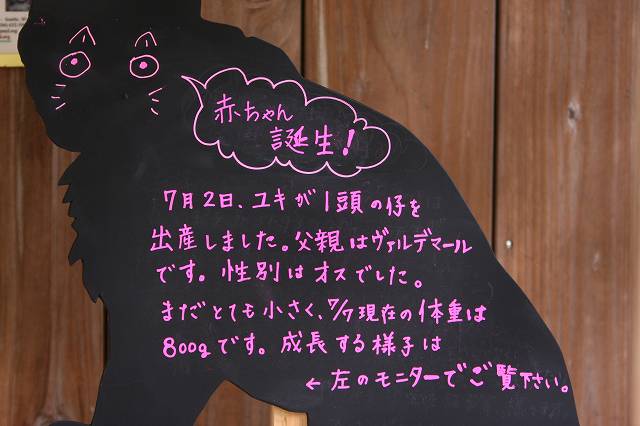 赤ちゃん
誕生!
7月2日、ユキが1頭の仔を
出産しました。父親はヴァルデマール
です。性別はオスでした。
まだとても小さく、7/7現在の体重は
800gです。成長する様子は
←左のモニターでご覧下さい。